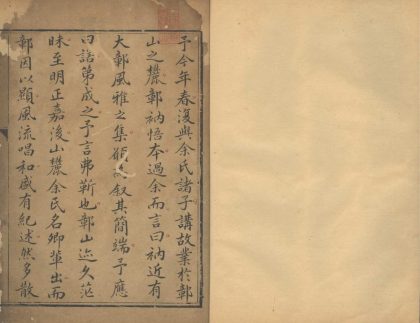 予今年春復與余氏諸子講故業於鄣
山之麓鄣衲悟本過余而言曰衲近有
大鄣風雅之集 敘其簡端予應
曰諾第成之予言弗靳也鄣山迹久茫
昧至明正嘉後山麓余氏名卿輩出而
鄣因以顯風流唱和盛有紀述然多散